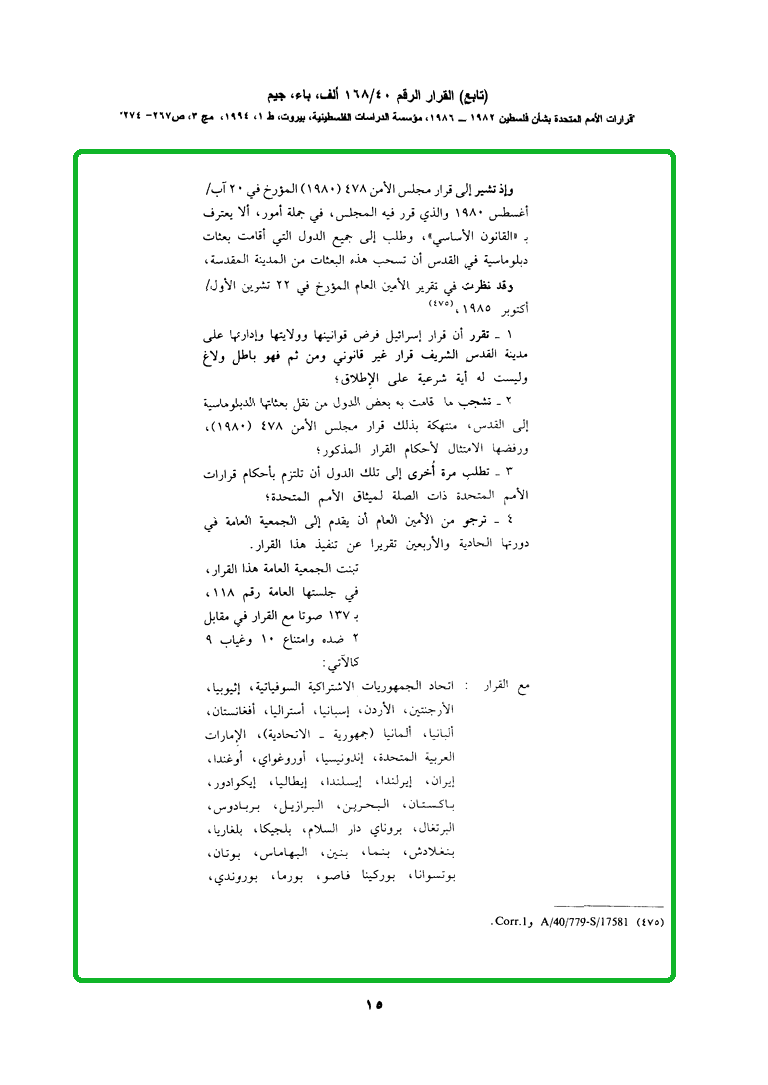 (تابع) القرار الرقم ١٦٨/٤٠ ألف، باء، جيم
"قرارات الأمم المتحدة بشأن فلسطين ١٩٨٢ ــ ١٩٨٦، مؤسسة الدراسات الفلسطينية، بيروت، ط ١، ١٩٩٤، مج ٣، ص٢٦٧- ٢٧٤"
وإذ تشير إلى قرار مجلس الأمن ٤٧٨ (١٩٨٠) المؤرخ في ٢٠ آب/
أغسطس ١٩٨٠ والذي قرر فيه المجلس، في جملة أمور، ألا يعترف
بـ «القانون الأساسي»، وطلب إلى جميع الدول التي أقامت بعثات
دبلوماسية في القدس أن تسحب هذه البعثات من المدينة المقدسة،
وقد نظرت في تقرير الأمين العام المؤرخ في ٢٢ تشرين الأول/
أكتوبر ١٩٨٥،(٤٧٥)
١ ـ تقرر أن قرار إسرائيل فرض قوانينها وولايتها وإدارتها على
مدينة القدس الشريف قرار غير قانوني ومن ثم فهو باطل ولاغ
وليست له أية شرعية على الإطلاق؛
٢ ـ تشجب ما قامت به بعض الدول من نقل بعثاتها الدبلوماسية
إلى القدس، منتهكة بذلك قرار مجلس الأمن ٤٧٨ (١٩٨٠)،
ورفضها الامتثال لأحكام القرار المذكور؛
٣ ـ تطلب مرة أُخرى إلى تلك الدول أن تلتزم بأحكام قرارات
الأمم المتحدة ذات الصلة لميثاق الأمم المتحدة؛
٤ ـ ترجو من الأمين العام أن يقدم إلى الجمعية العامة في
دورتها الحادية والأربعين تقريرا عن تنفيذ هذا القرار.
تبنت الجمعية العامة هذا القرار،
في جلستها العامة رقم ١١٨،
بـ ١٣٧ صوتا مع القرار في مقابل
٢ ضده وامتناع ١٠ وغياب ٩
كالآتي:
مع القرار : اتحاد الجمهوريات الاشتراكية السوفياتية، إثيوبيا،
الأرجنتين، الأردن، إسبانيا، أستراليا، أفغانستان،
ألبانيا، ألمانيا (جمهورية ـ الاتحادية)، الإمارات
العربية المتحدة، إندونيسيا، أوروغواي، أوغندا،
إيران، إيرلندا، إيسلندا، إيطاليا، إيكوادور،
باكستان، البحرين، البرازيل، بربادوس،
البرتغال، بروناي دار السلام، بلجيكا، بلغاريا،
بنغلادش، بنما، بنين، البهاماس، بوتان،
بوتسوانا، بوركينا فاصو، بورما، بوروندي،
(٤٧٥) A/40/779-S/17581 و Corr.1.
١٥